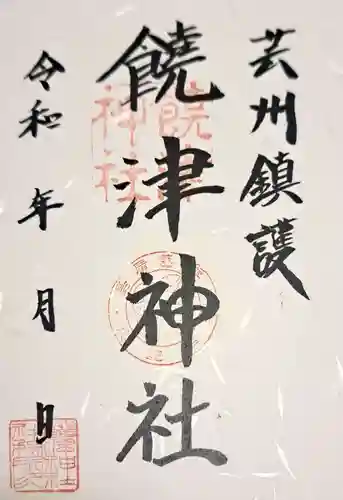 芸州鎮護
饒津神社
令和 年 月 日
饒津神社